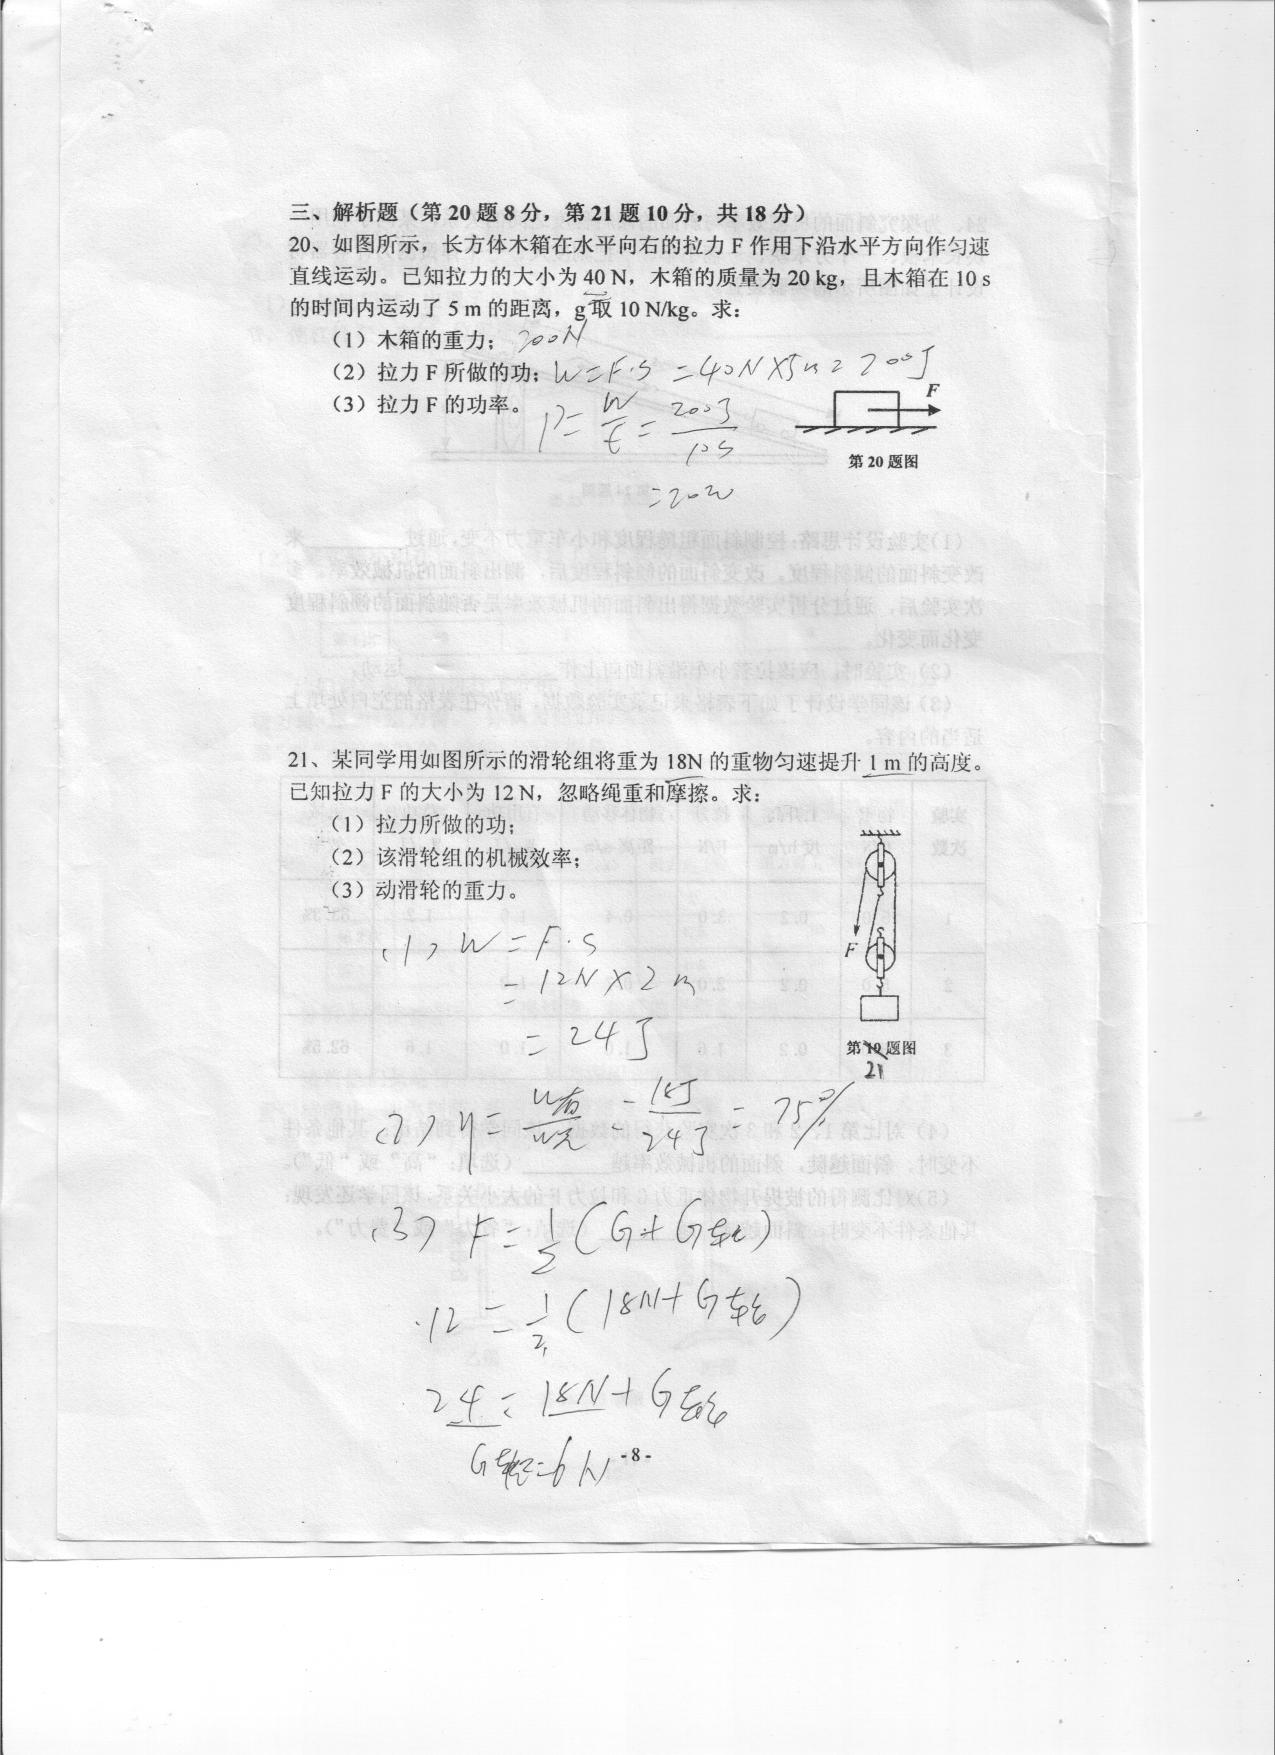 三、解析题（第 20 题 8 分，第 21 题 10 分，共 18 分）
20、如图所示，长方体木箱在水平向右的拉力 F 作用下沿水平方向作匀速
直线运动。已知拉力的大小为 40 N，木箱的质量为 20 kg，且木箱在 10 s
的时间内运动了 5 m 的距离，g 取 10 N/kg。求：
（1）木箱的重力； 200N
（2）拉力 F 所做的功； W=F·S =40N×5m=200J
（3）拉力 F 的功率。 P=W/t=200J/10s
=20W
F
第 20 题图
21、某同学用如图所示的滑轮组将重为 18N 的重物匀速提升 1 m 的高度。
已知拉力 F 的大小为 12 N，忽略绳重和摩擦。求：
（1）拉力所做的功；
（2）该滑轮组的机械效率；
（3）动滑轮的重力。
F
第 19 题图
21
(1) W=F·S
=12N×2m
=24J
(2) η=W有/W总=18J/24J=75%
(3) F=1/2(G+G轮)
12=1/2(18N+G轮)
24=18N+G轮
G轮=6N
- 8 -